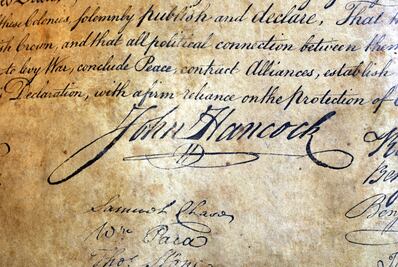 these Colonies, solemnly publish and declare, That t
h Crown, and that all political connection between them
to levy War, conclude Peace, contract Alliances, establish
Declaration, with a firm reliance on the protection of
John Hancock
Samuel Chase
Wm Paca
Thos Stone
Ben